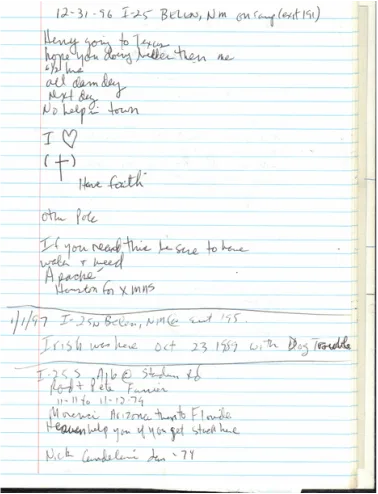 12-31-96 I-25 BELEN, NM on ramp (exit 191)
Henry going to Texas
hope you doing better then me
all damn day
Next day
No help in town
I ♡
(†)
Have faith
other Pole
If you read this be sure to have
water + weed
Apache
Houston for XMAS
1/1/97 I-25N BELEN, NM @ exit 195
Irish was here Oct 23 1989 with Dog Trouble
I-25 S. Alb @ Stadium Rd
Pete Farrier
11-11 to 11-12-79
Morenci Arizona then to Florida
Heaven help you if you get stuck here
Nick Jan - 74